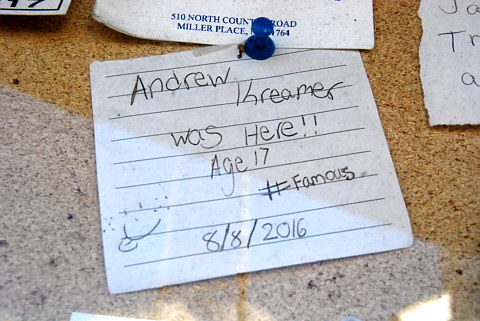 510 NORTH COUNTRY ROAD
MILLER PLACE, 11764
Andrew
Kreamer
was Here!!
Age 17
#Famous
8/8/2016